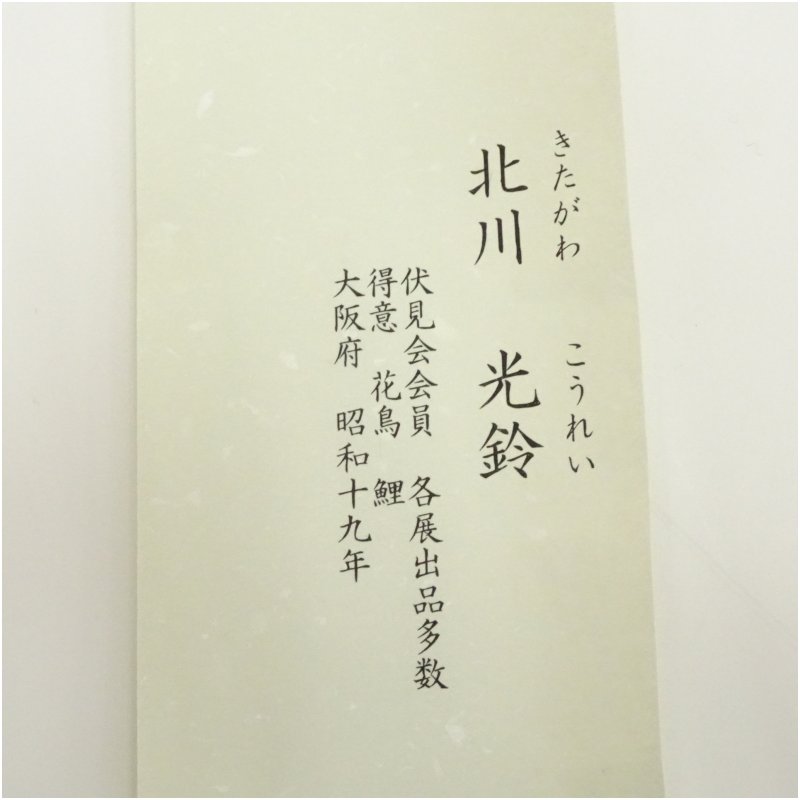 きたがわ　こうれい
北川　光鈴
伏見会会員　各展出品多数
得意　花鳥　鯉
大阪府　昭和十九年